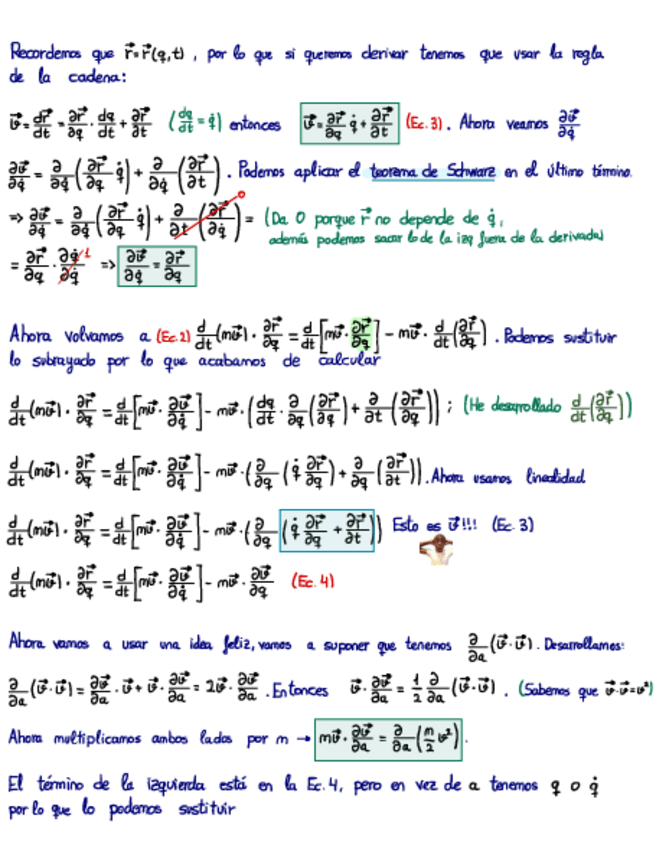 Recordemos que r⃗=r⃗(q,t), por lo que si queremos derivar tenemos que usar la regla
de la cadena:
v⃗ = dr⃗/dt = ∂r⃗/∂q · dq/dt + ∂r⃗/∂t (dq/dt = q̇) entonces v⃗ = ∂r⃗/∂q q̇ + ∂r⃗/∂t (Ec. 3). Ahora veamos ∂v⃗/∂q̇
∂v⃗/∂q̇ = ∂/∂q̇ (∂r⃗/∂q q̇) + ∂/∂q̇ (∂r⃗/∂t). Podemos aplicar el teorema de Schwarz en el último término.
=> ∂v⃗/∂q̇ = ∂/∂q̇ (∂r⃗/∂q q̇) + ∂/∂t (∂r⃗/∂q̇) 0 = (Da 0 porque r⃗ no depende de q̇,
además podemos sacar lo de la izq fuera de la derivada)
= ∂r⃗/∂q · ∂q̇/∂q̇ 1 => ∂v⃗/∂q̇ = ∂r⃗/∂q
Ahora volvamos a (Ec.2) d/dt (mv⃗) · ∂r⃗/∂q = d/dt [mv⃗ · ∂r⃗/∂q] - mv⃗ · d/dt (∂r⃗/∂q). Podemos sustituir
lo subrayado por lo que acabamos de calcular
d/dt (mv⃗) · ∂r⃗/∂q = d/dt [mv⃗ · ∂v⃗/∂q̇] - mv⃗ · (dq/dt · ∂/∂q (∂r⃗/∂q) + ∂/∂t (∂r⃗/∂q)) ; (He desarrollado d/dt (∂r⃗/∂q))
d/dt (mv⃗) · ∂r⃗/∂q = d/dt [mv⃗ · ∂v⃗/∂q̇] - mv⃗ · (∂/∂q (q̇ ∂r⃗/∂q) + ∂/∂q (∂r⃗/∂t)). Ahora usamos linealidad
d/dt (mv⃗) · ∂r⃗/∂q = d/dt [mv⃗ · ∂v⃗/∂q̇] - mv⃗ · (∂/∂q (q̇ ∂r⃗/∂q + ∂r⃗/∂t)) Esto es v⃗!!! (Ec. 3)
d/dt (mv⃗) · ∂r⃗/∂q = d/dt [mv⃗ · ∂v⃗/∂q̇] - mv⃗ · ∂v⃗/∂q (Ec. 4)
Ahora vamos a usar una idea feliz, vamos a suponer que tenemos ∂/∂a (v⃗ · v⃗). Desarrollamos:
∂/∂a (v⃗ · v⃗) = ∂v⃗/∂a · v⃗ + v⃗ · ∂v⃗/∂a = 2v⃗ · ∂v⃗/∂a. Entonces v⃗ · ∂v⃗/∂a = 1/2 ∂/∂a (v⃗ · v⃗). (Sabemos que v⃗ · v⃗ = v²)
Ahora multiplicamos ambos lados por m → mv⃗ · ∂v⃗/∂a = ∂/∂a (m/2 v²).
El término de la izquierda está en la Ec. 4, pero en vez de a tenemos q o q̇
por lo que lo podemos sustituir